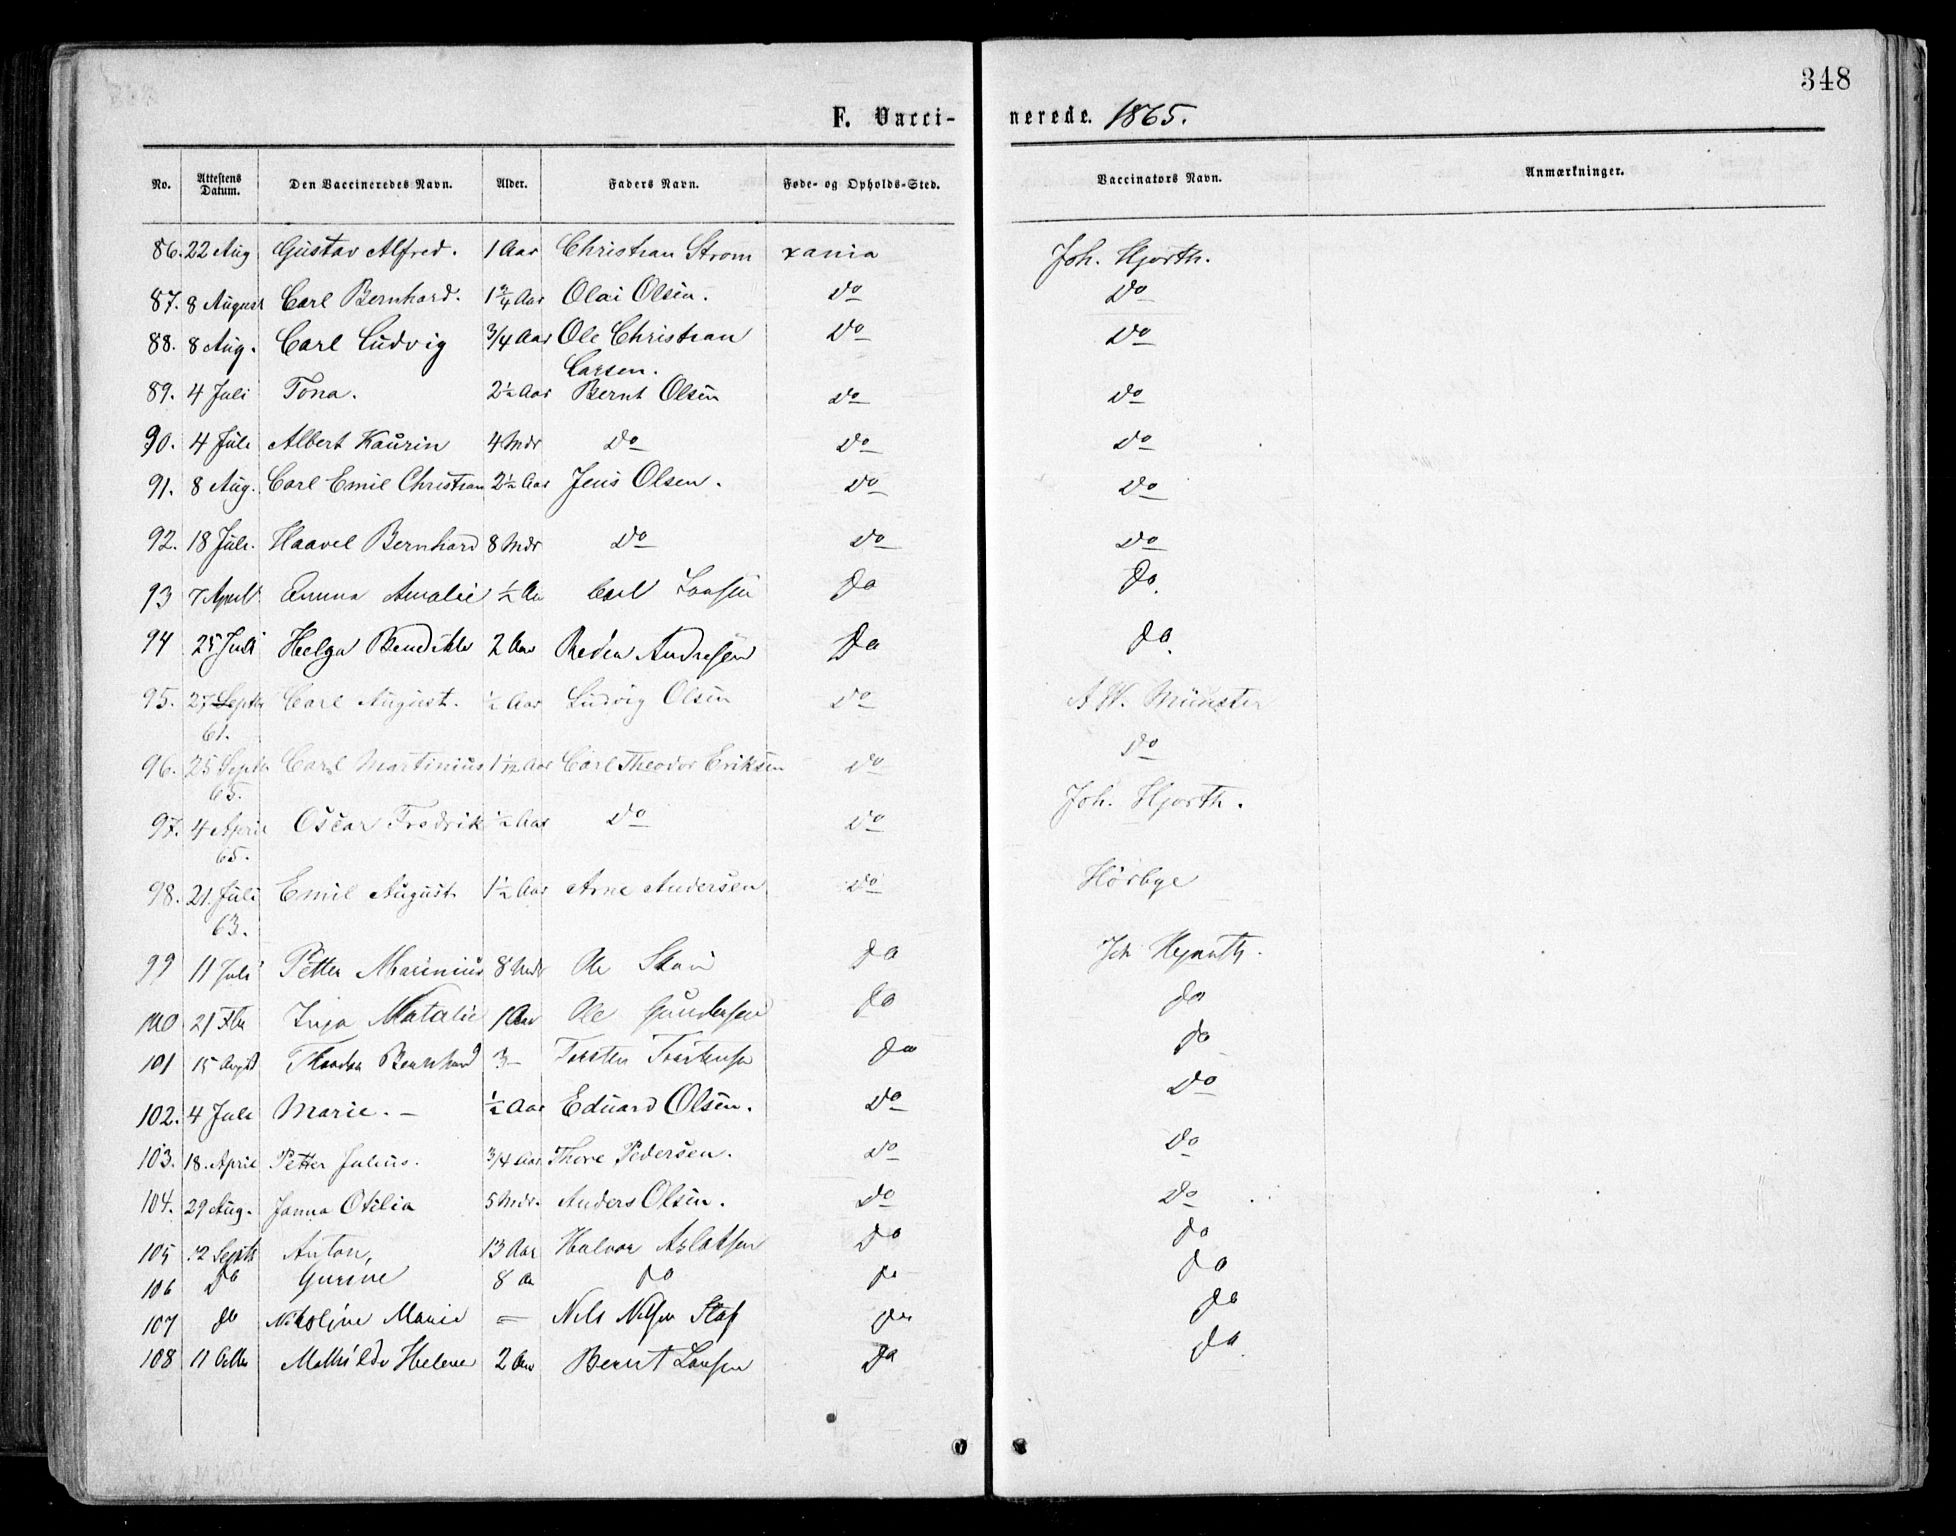 348
F. Vacci- nerede. 1865.
No. Attestens Datum. Den Vaccineredes Navn. Alder. Faders Navn. Føde- og Opholds-Sted. Vaccinators Navn. Anmærkninger.
86. 22 Aug Gustav Alfred. 1 Aar Christian Strøm xania Joh. Hjorth.
87. 8 August Carl Bernhard. 1 3/4 Aar Olai Olsen. Do Do
88. 8 Aug. Carl Ludvig 3/4 Aar Ole Christian Do Do
Larsen.
89. 4 Juli Tona. 2 1/2 Aar Bernt Olsen Do Do
90. 4 Juli Albert Kaurin 4 Mdr Do Do Do
91. 8 Aug. Carl Emil Christian 2 1/2 Aar Jens Olsen. Do Do
92. 18 Juli. Haavel Bernhard 8 Mdr Do Do Do
93 7 April Anna Amalie 1/2 Aar Carl Larsen Do Do.
94 25 Juli Helga Bendikte 2 Aar Andresen Do Do.
95. 27 Septbr Carl August. 1/2 Aar Ludvig Olsen Do A W. Münster
61.
96. 25 Septbr Carl Martinius 1 1/12 Aar Carl Theodor Eriksen Do Do
65.
97. 4 April Oscar Fredrik 1/2 Aar Do Do Joh. Hjorth.
65.
98. 21. Juli Emil August 1 1/2 Aar Arne Andersen Do Hörbye
63.
99 11 Juli Petter Marinius 8 Mdr Ole Do Joh Hjorth.
100 21 Inga Natalie 1 Aar Ole Gundersen Do Do
101 15 August Theodor Bernhard 3 – Torsten Torstensen Do Do
102. 4 Juli Marie. – 1/2 Aar Eduard Olsen. Do Do
103. 18. April Petter Julius. 3/4 Aar Thore Pedersen. Do Do
104. 29 Aug. Janna Otilia 5 Mdr. Anders Olsen. Do Do
105 12 Septb Anton, 13 Aar Halvor Aslaksen Do Do
106 Do Gurine 8 Aar Do Do Do
107 Do Nicoline Marie = Nils Nilsen Do Do
108 11 Octbr Mathilde Helene 2 Aar Bernt Larsen Do Do